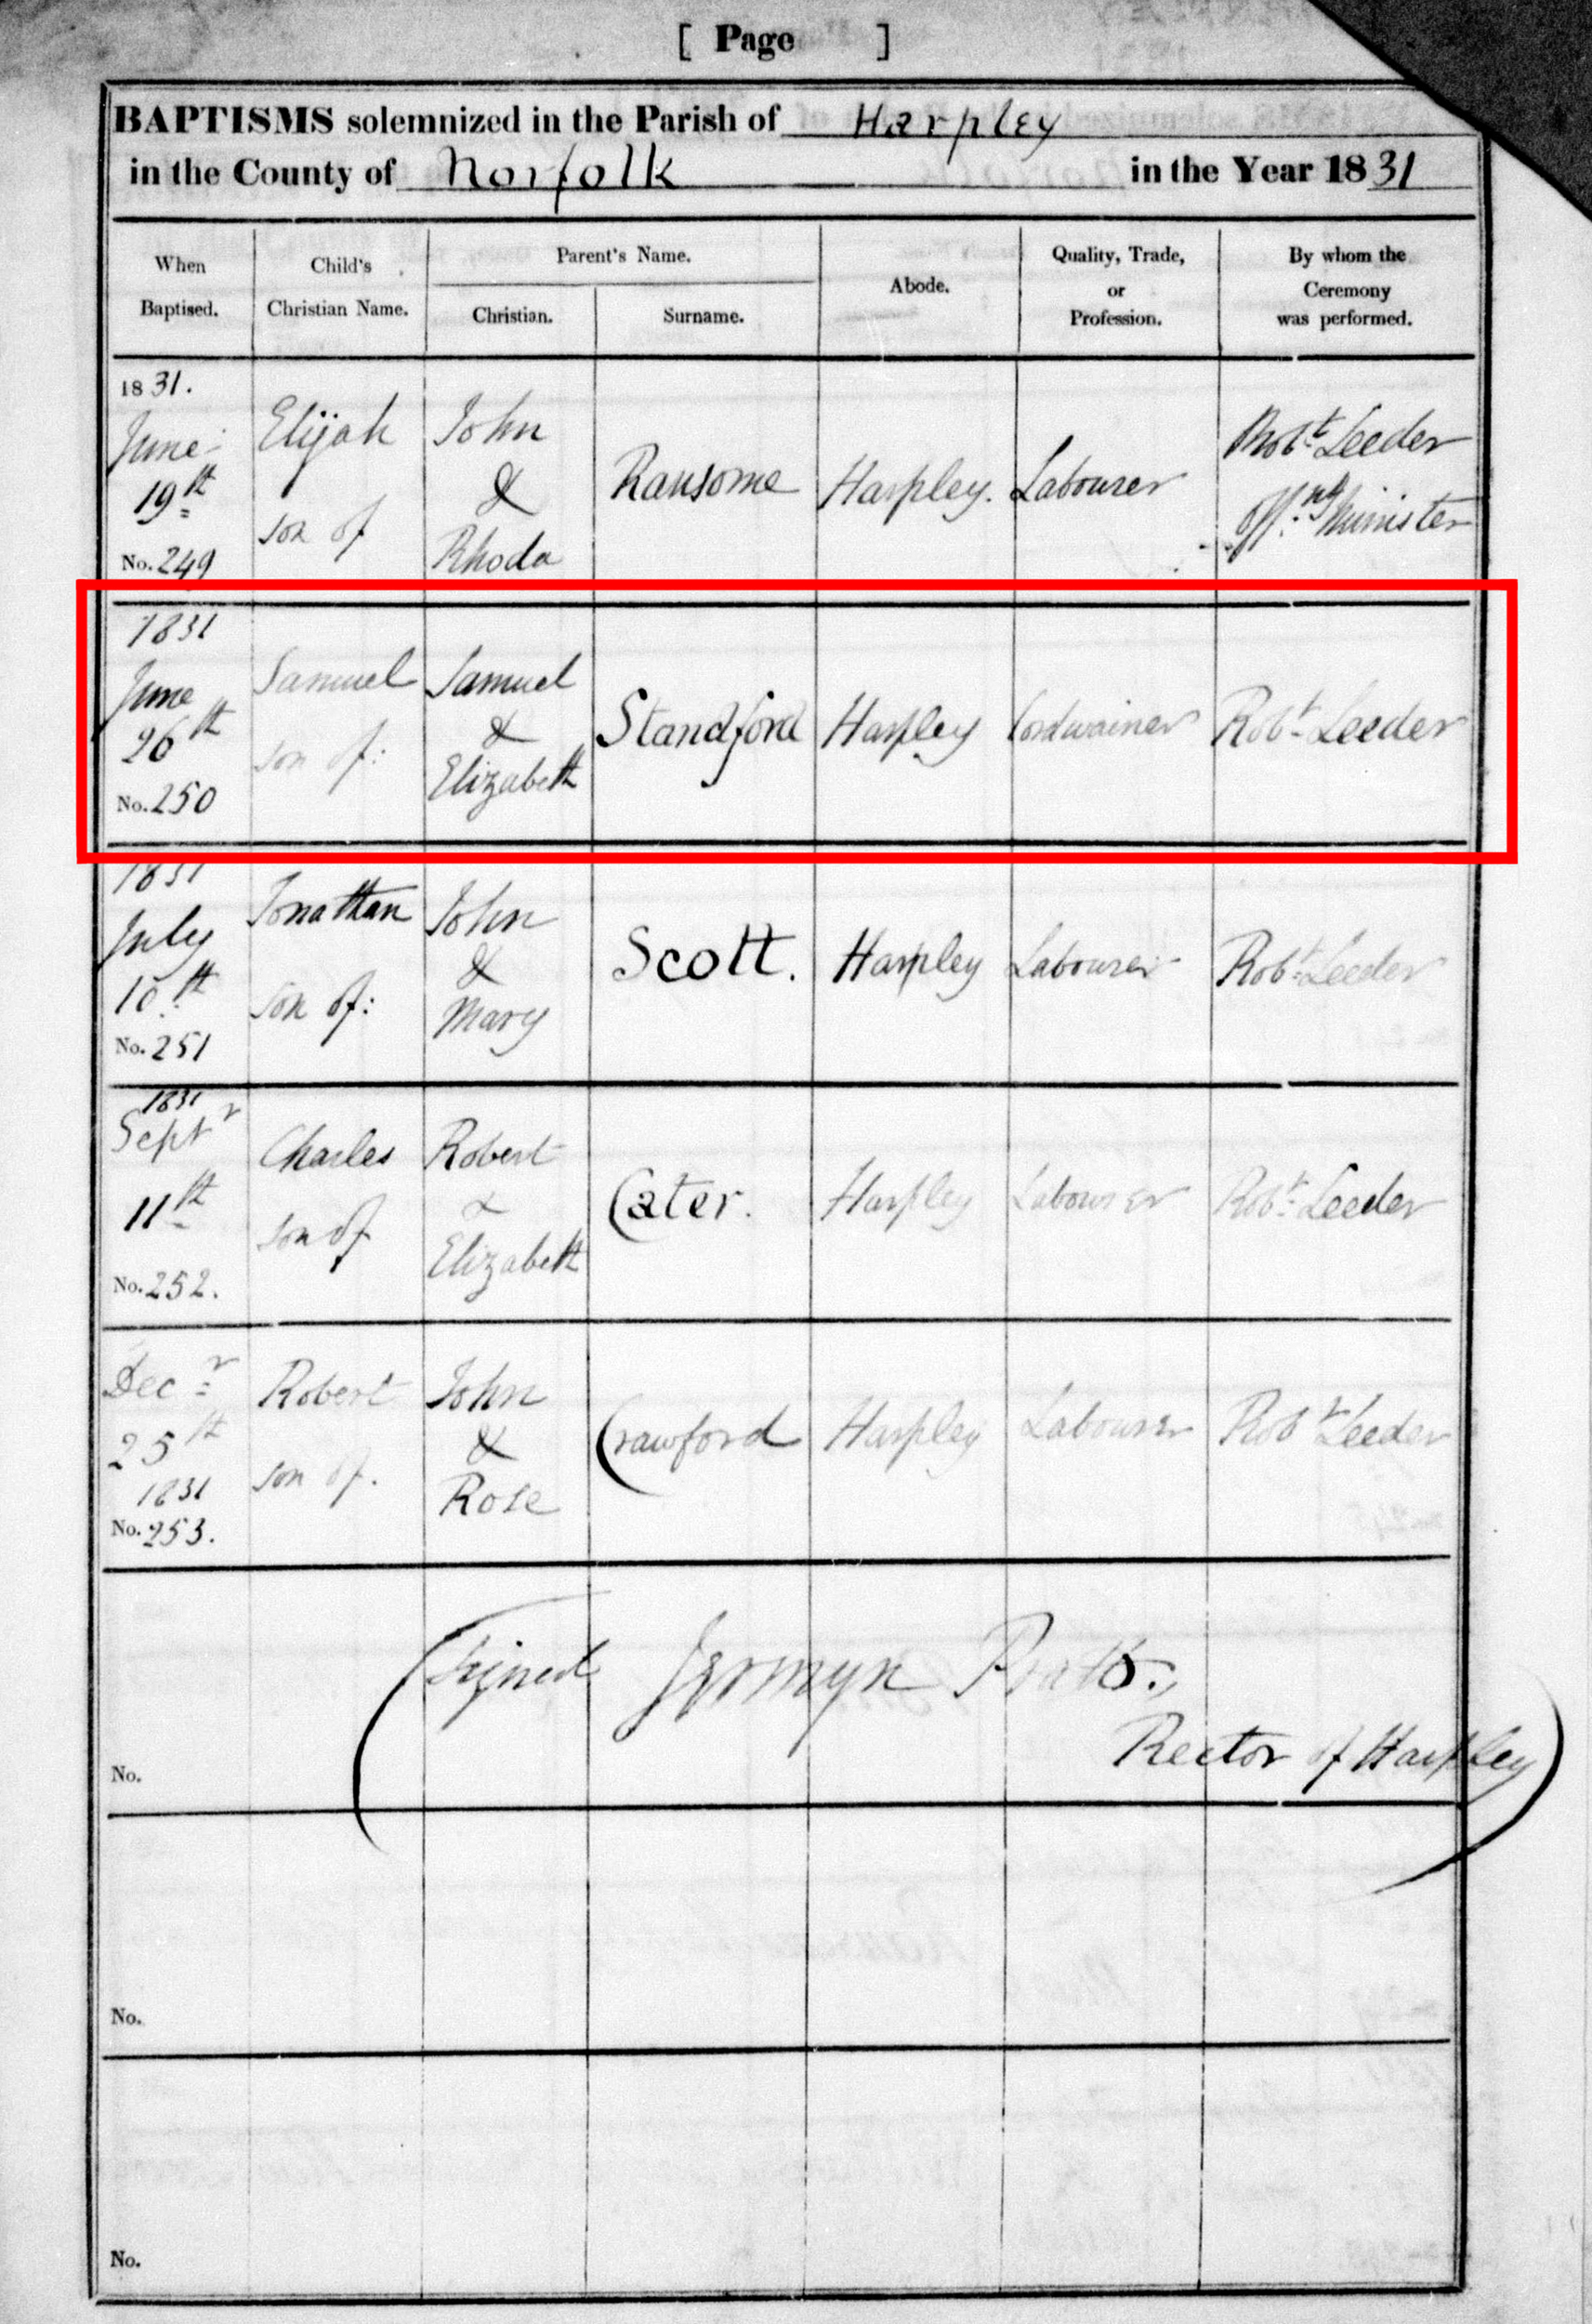 [ Page ]
BAPTISMS solemnized in the Parish of Harpley
in the County of Norfolk in the Year 1831
When Baptised.
Child's Christian Name.
Parent's Name.
Christian.
Surname.
Abode.
Quality, Trade, or Profession.
By whom the Ceremony was performed.
1831.
June
19th
No. 249
Elijah
son of
John
&
Rhoda
Ransome
Harpley.
Labourer
Robt Leeder
Offng Minister
1831
June
26th
No. 250
Samuel
son of:
Samuel
&
Elizabeth
Standford
Harpley
Cordwainer
Robt Leeder
1831
July
10th
No. 251
Jonathan
son of:
John
&
Mary
Scott.
Harpley
Labourer
Robt Leeder
1831
Septr
11th
No. 252.
Charles
son of
Robert
&
Elizabeth
Cater.
Harpley
Labourer
Robt Leeder
Decr
25th
1831
No. 253.
Robert
son of.
John
&
Rose
Crawford
Harpley
Labourer
Robt Leeder
Signed Jermyn Pratt.,
Rector of Harpley
No.
No.
No.